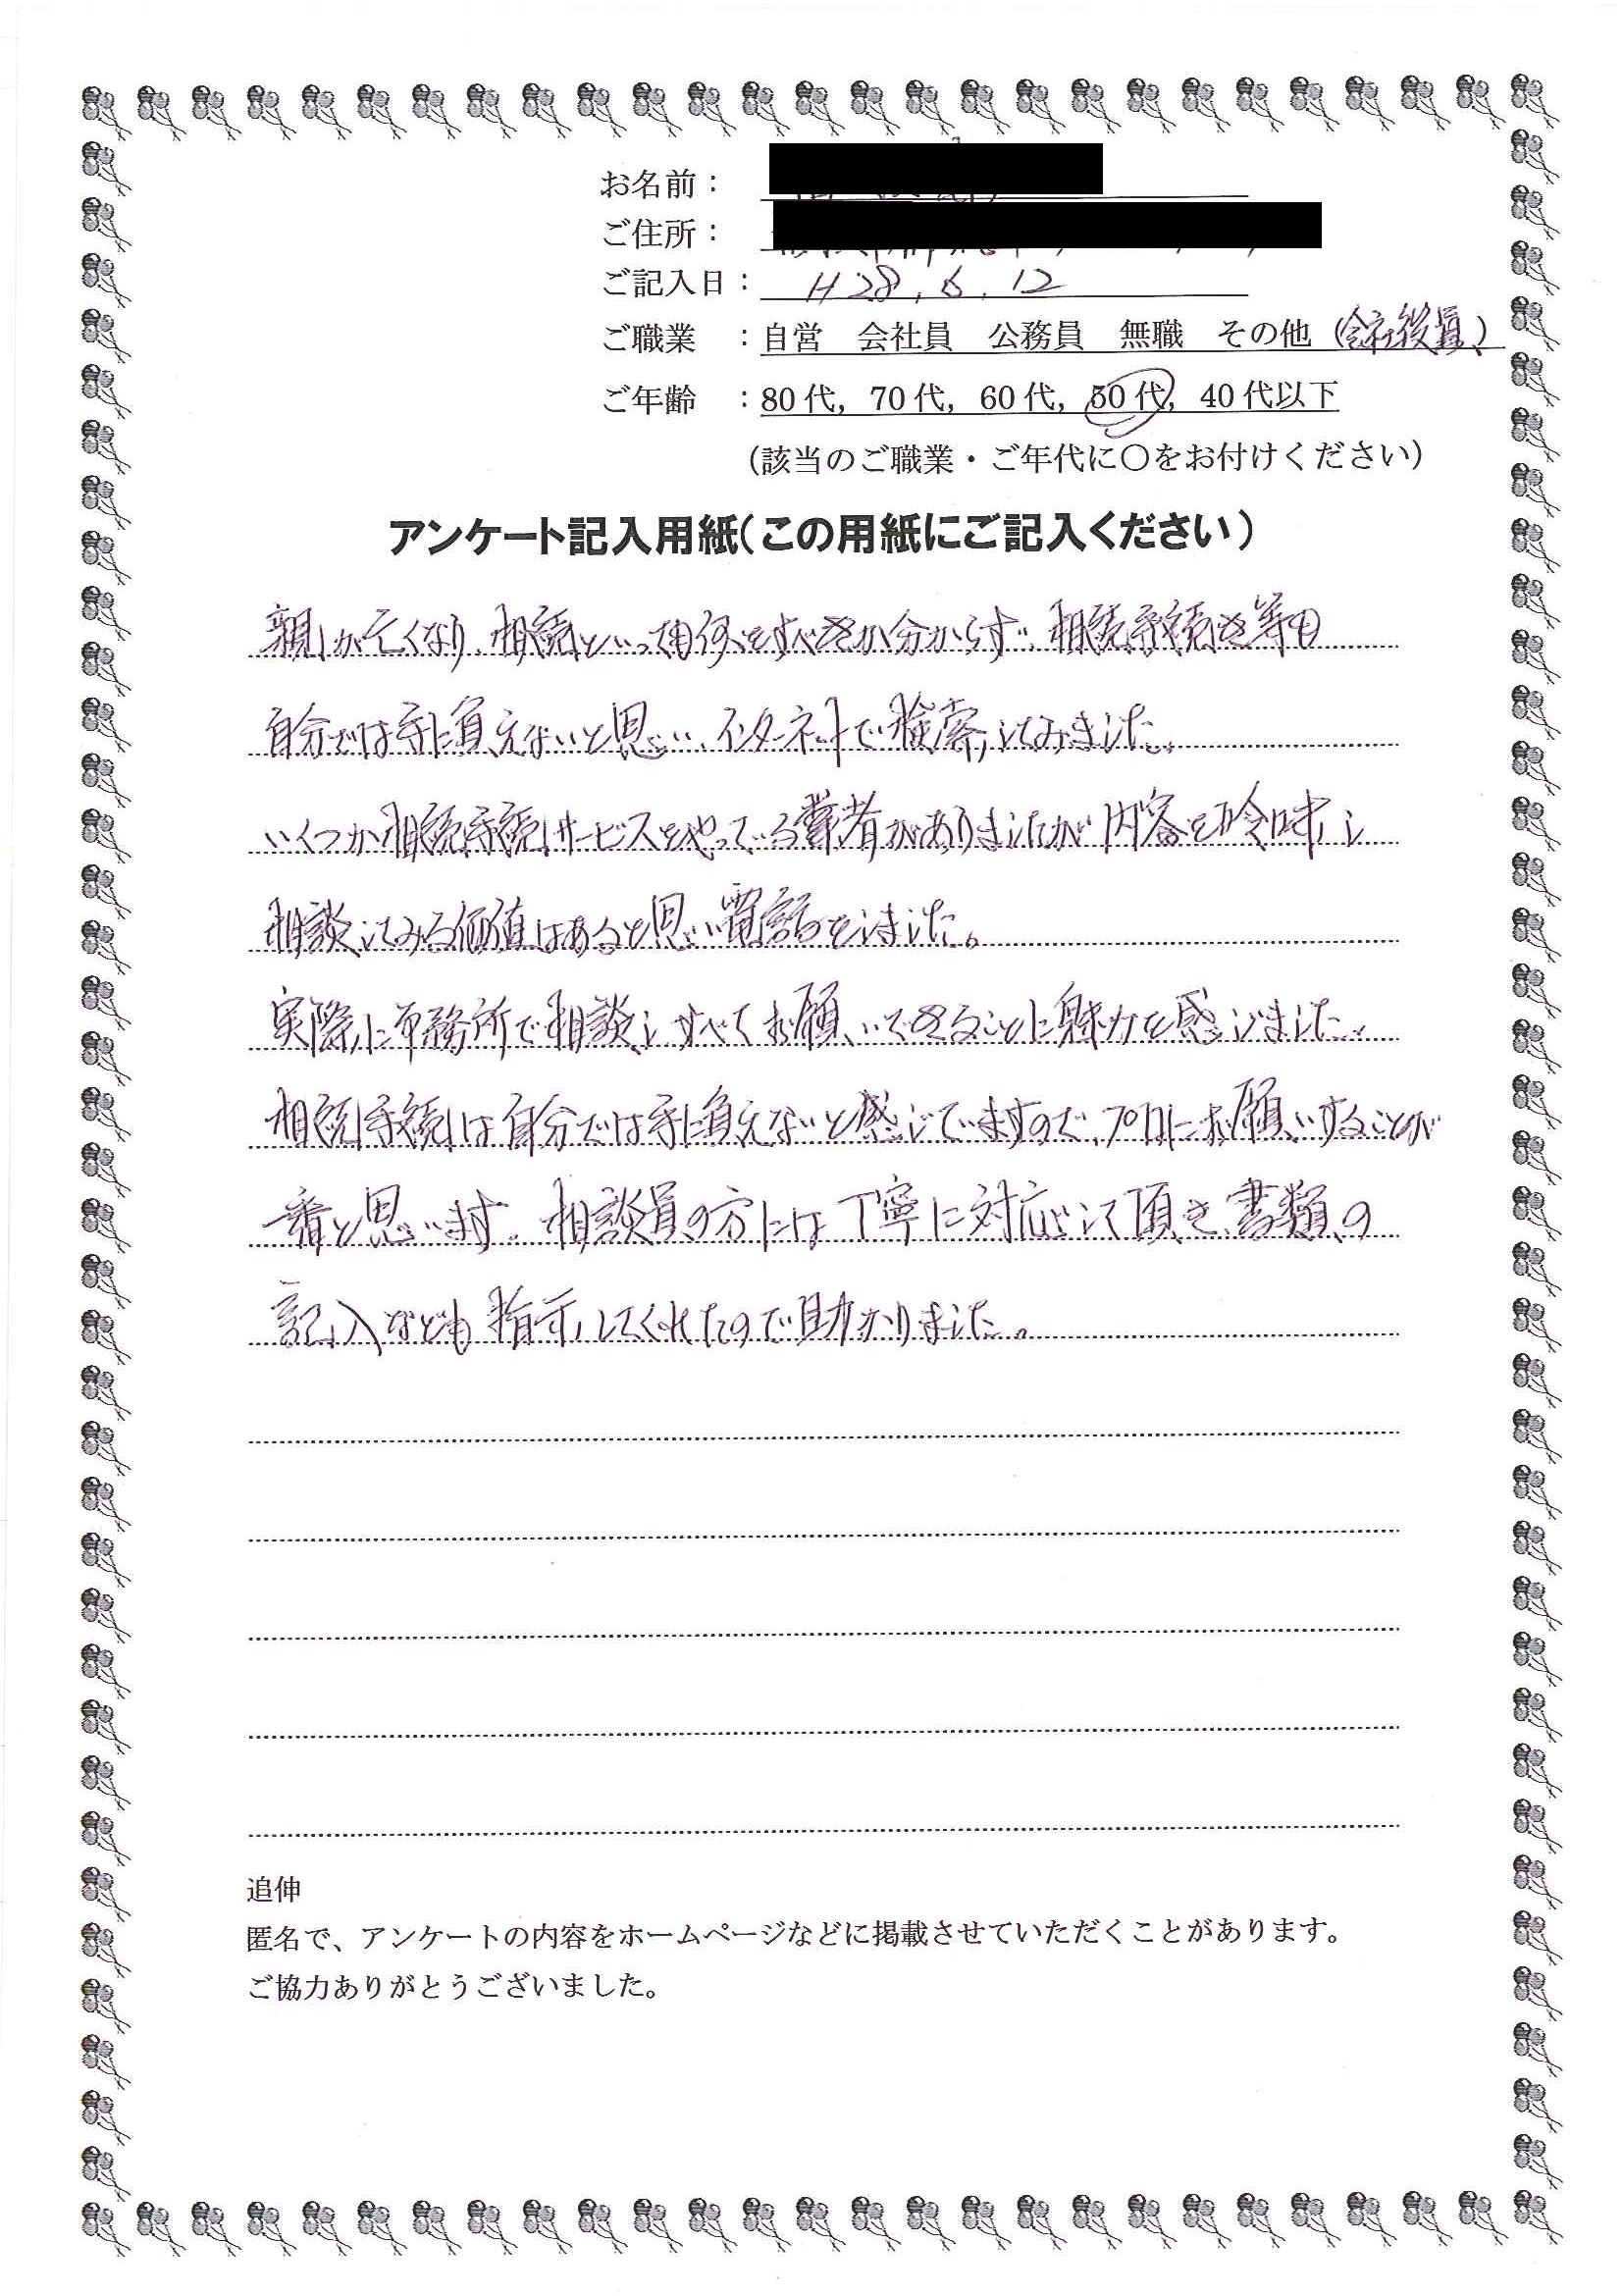 お名前：
ご住所：
ご記入日： H28.6.12
ご職業 ：自営 会社員 公務員 無職 その他（会社役員）
ご年齢 ：80代，70代，60代，50代，40代以下
（該当のご職業・ご年代に〇をお付けください）
アンケート記入用紙（この用紙にご記入ください）
親が亡くなり、相続といっても何をすべきか分からず、相続手続き等も
自分では手に負えないと思い、インターネットで検索してみました。
いくつか相続手続サービスをやっている業者がありましたが内容を吟味し
相談してみる価値はあると思い電話をしました。
実際に事務所で相談しすべてお願いできることに魅力を感じました。
相続手続は自分では手に負えないと感じていますので、プロにお願いすることが
一番と思います。相談員の方には丁寧に対応して頂き、書類の
記入なども指示してくれたので助かりました。
追伸
匿名で、アンケートの内容をホームページなどに掲載させていただくことがあります。
ご協力ありがとうございました。